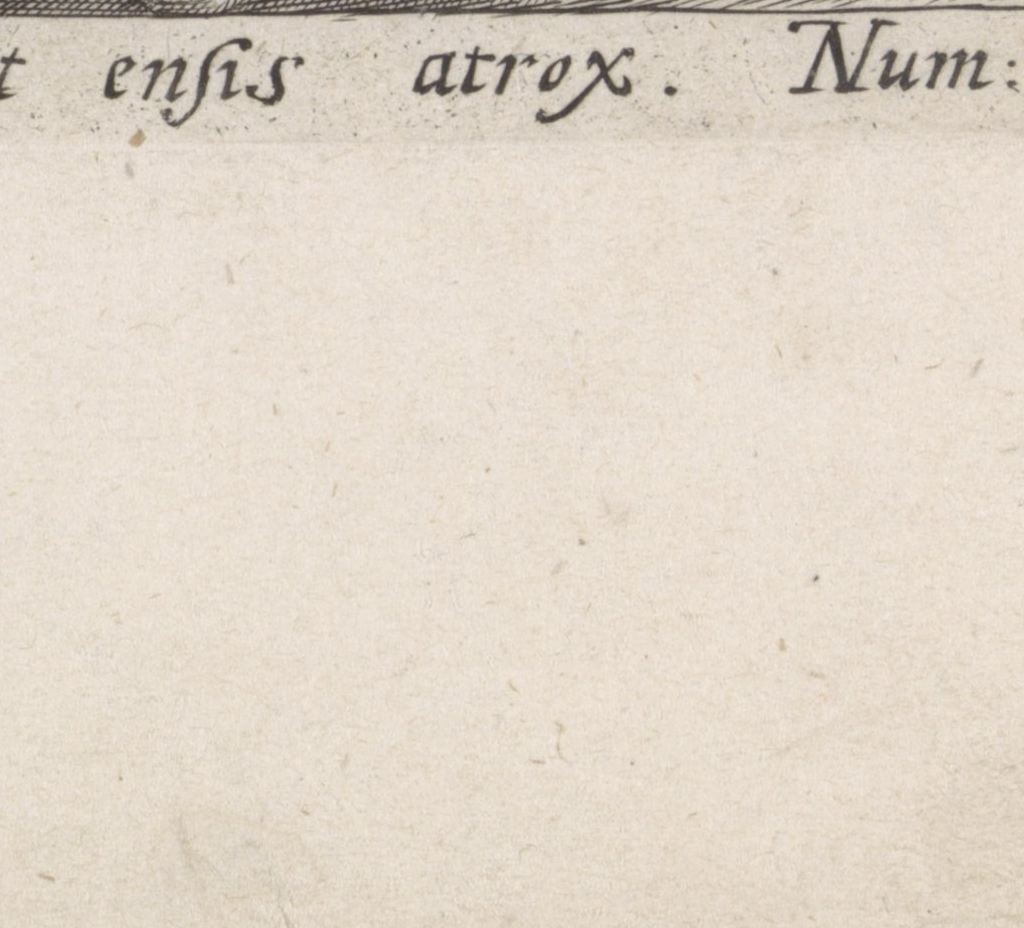 t enſis atrox. Num: